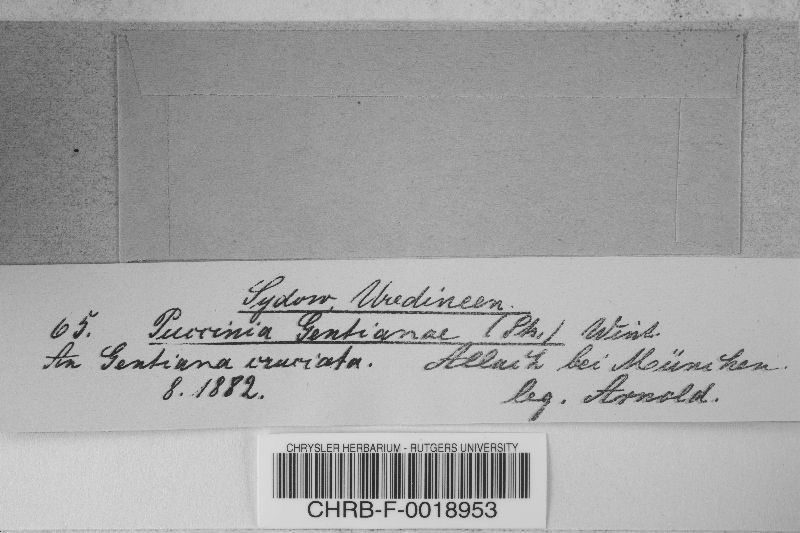 Sydow, Uredineen.
65. Puccinia Gentianae (Str.) Wint.
An Gentiana cruciata. Allach bei München.
8. 1882. leg. Arnold.
CHRYSLER HERBARIUM - RUTGERS UNIVERSITY
CHRB-F-0018953